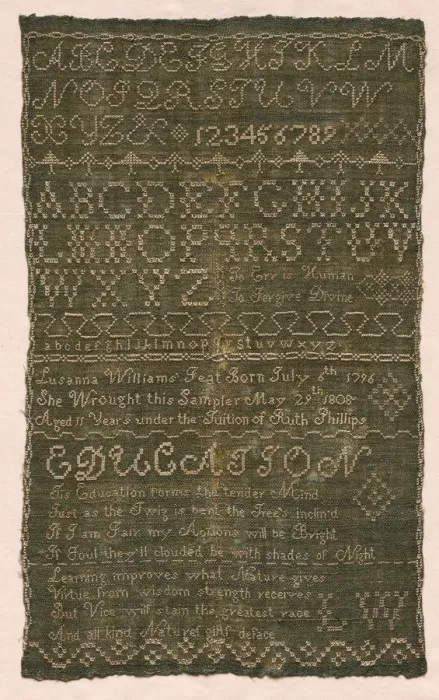 A B C D E F G H I K L M
N O P Q R S T U V W
X Y Z & 1 2 3 4 5 6 7 8 9
A B C D E F G H I J K
L M N O P R S T U V
W X Y Z
To Err is Human
To Forgive Divine
a b c d e f g h i j k l m n o p q r s t u v w x y z
Lusanna Williams Feat Born July 6th 1796
She Wrought this Sampler May 29th 1808
Aged 11 Years under the Tuition of Ruth Phillips
EDUCATION
Tis Education forms the tender Mind
Just as the Twig is bent the Tree's inclin'd
If I am Fair my Actions will be Bright
If Foul they'll clouded be with shades of Night
Learning improves what Nature gives
Virtue from wisdom strength receives
But Vice will stain the greatest race
And all kind Natures gifts deface
L W